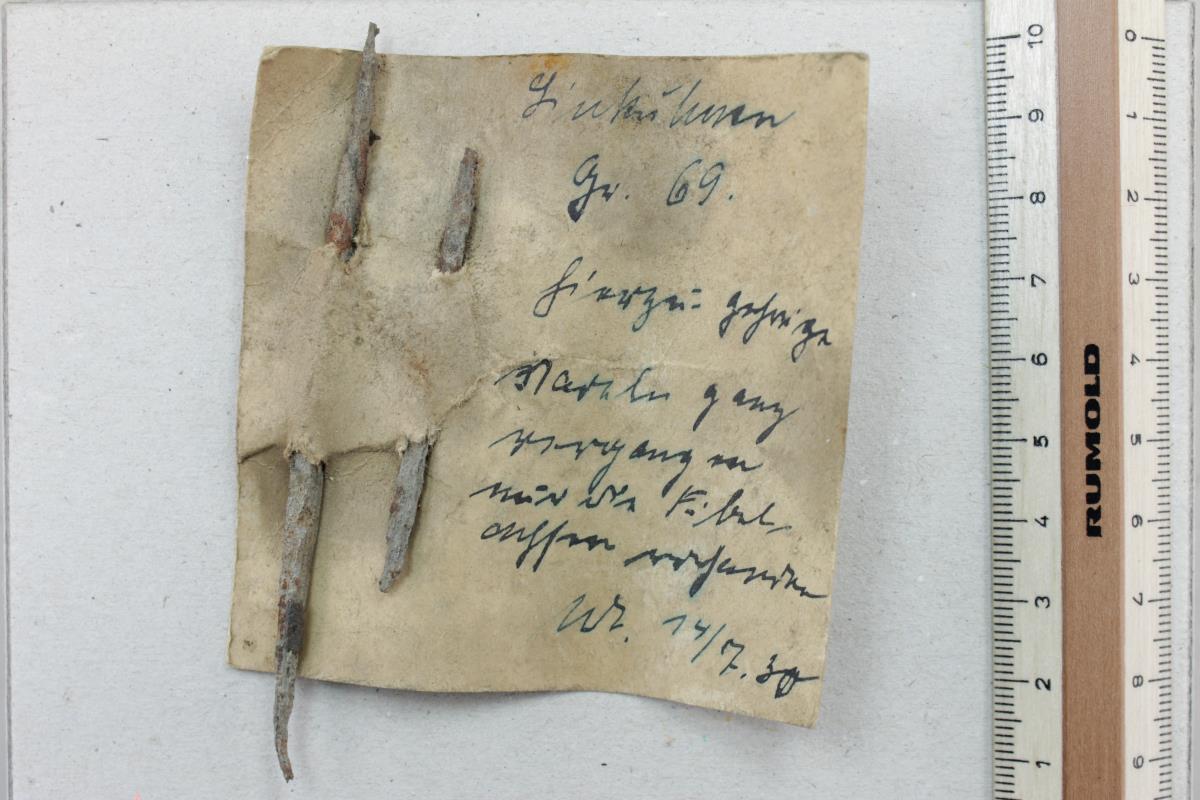 Linkuhnen
Gr. 69.
Hierzu gehörige
Nadeln ganz
vergangen
nur die Fibel-
achsen vorhanden
14/7. 30
RUMOLD
10 9 8 7 6 5 4 3 2 1
0 1 2 3 4 5 6 7 8 9